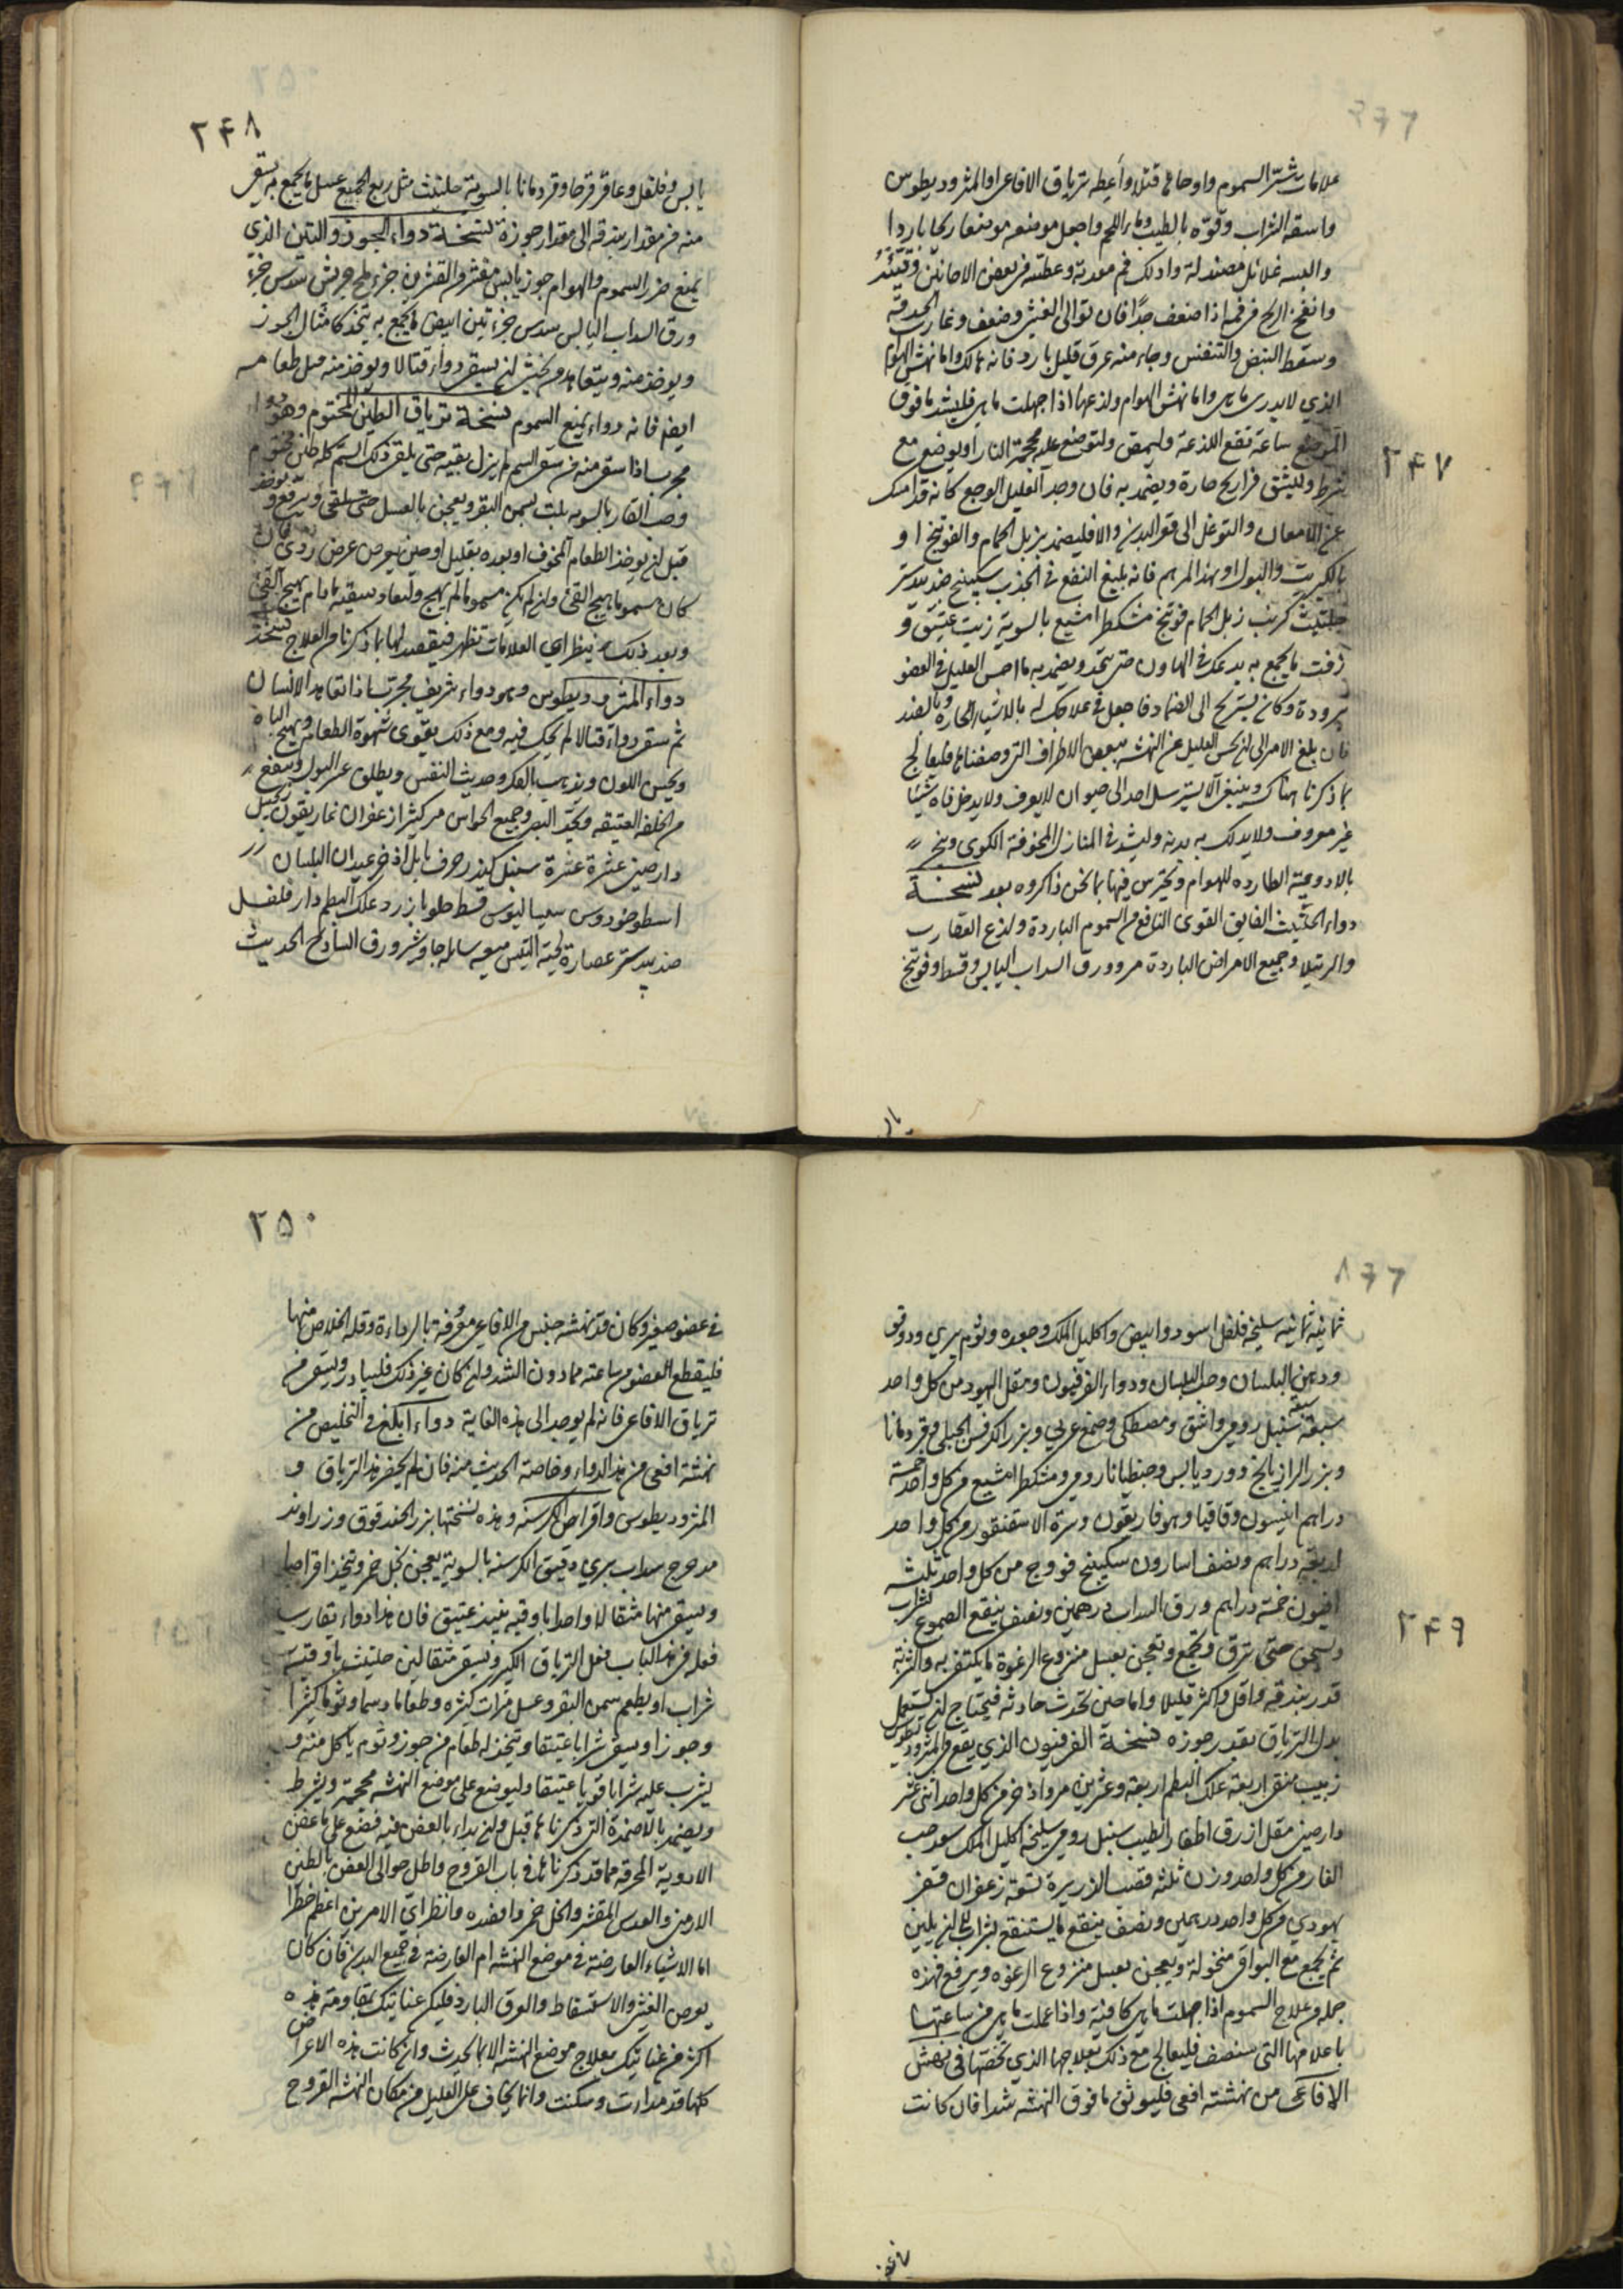 علامات شر السموم واوحاها قتلا وأعطه ترياق الافاعى او المثروديطوس
واسقه الشراب وقوه بالطيب وماء اللحم واجعل موضعه موضعا ريحا باردا
والبسه غلائل مصندلة وادلك فم معدته وعطسه فى بعض الاحائين وقيئه
وانفخ الريح فى فمه اذا ضعف جدا فان توالى الغشى وضعف وغارت الحدقة
وسقط النبض والتنفس وجاء منه عرق قليل بارد فانه هالك واما نهش الهوام
الذي لا يدرى ما هى واما نهش الهوام ولذعها اذا جهلت ما هى فليشد ما فوق
الموضع ساعة تقع اللذعة وليمص ولتوضع عليه محجمة النار او ليوضع مع
شرط وليشق فراريج حارة ويضمد به فان وجد العليل الوجع كانه قد امسك
عن الامعان والتوغل الى قعر البدن والا فليضمد بزبل الحمام والفوتنج او
بالكبريت والبول او بهذا المرهم فانه بليغ النفع في الجذب سكبينج جندبيدستر
حلتيت كبريت زبل الحمام فوتنج مشكطرامشيع بالسوية زيت عتيق و
زفت ما يجمع به يدعك في الهاون حتى يتحد ويضمد به ما احس العليل في العضو
برودة وكان يستريح الى الضماد فاجعل في علاجك له بالاشياء الحارة وبالضد
فان بلغ الامر الى ان يحس العليل عن النهشة ببعض الاطراف التي وصفناها فليعالج
بما ذكرنا هناك وينبغي الا يسترسل احد الى حيوان لا يعرف ولا يدخل فاه شيئا
غير معروف ولا يدلك به بدنه وليشد في المنازل المخوفة الكوى ويبخر
بالادوية الطاردة للهوام ويحترس فيها بما نحن ذاكروه بعد نسخة
دواء الحلتيت الفايق القوى النافع من السموم الباردة ولذع العقارب
والرتيلا وجميع الامراض الباردة مر وورق السداب اليابس وقسط وفوتنج
٢٤٧
يا
٢٤٨
يابس وفلفل وعاقر قرحا وقردمانا بالسوية حلتيت مثل ربع الجميع عسل ما يجمع به يسقى
منه من مقدار بندقة الى مقدار جوزة نسخة دواء الجوز والتين الذي
يمنع ضرر السموم والهوام جوز يابس مقشر من القشرين جزء ملح جريش سدس جزء
ورق السداب اليابس سدس جزء تين ابيض ما يجمع به يتخذ كامثال الجوز
ويوخذ منه ويتعاهده من يخشى ان يسقى دواء قتالا ويوخذ منه قبل طعامه
ايضا فانه دواء يمنع السموم نسخة ترياق الطين المختوم وهو دواء
مجرب اذا سقى منه من سقى السم لم يزل يقيئه حتى يلقى ذلك السم كله طين مختوم
وحب الغار بالسوية يلت بسمن البقر ويعجن بالعسل حتى يلتقى ويرفع ويوخذ
قبل ان يوخذ الطعام المخوف او بعده بقليل او حين يعرض عرض ردى فان
كان مسموما هيج القئ وان لم يكن مسموما لم يهج وليعاود سقيه ما دام يهيج القئ
وبعد ذلك ينظر اي العلامات تظهر فيقصد لها بما ذكرنا من العلاج نسخة
دواء المثروديطوس وهو دواء شريف مجرب اذا تعاهده الانسان
ثم سقى دواء قتالا لم يحك فيه ومع ذلك يقوى شهوة الطعام ويهيج الباه
ويحسن اللون ويذهب بالفكر وحديث النفس ويطلق عسر البول وينفع
من الخلفه العتيقه ويحد البصر وجميع الحواس مر كيثرا زعفران غاريقون زنجبيل
دارصيني عشرة عشرة سنبل كندر حرف بابلى اذخر عيدان البلسان
اسطوخودوس سيساليوس قسط حلو بارزد علك البطم دارفلفل
جندبيدستر عصارة لحية التيس ميعه سائله جاوشير ورق السادج الحديث
ثمانيه ثمانيه سليخه فلفل اسود وابيض واكليل الملك وجعده وثوم بري ودوقو
ودهن البلسان وحب البلسان ودواء القرفيون ومقل اليهود من كل واحد
سبعة سنبل رومي واشق ومصطكى وصمغ عربي وبزر الكرفس الجبلي وقردمانا
وبزر الرازيانج وورد يابس وجنطيانا رومي ومشكطرامشيع من كل واحد خمسة
دراهم انيسون وقاقيا وهوفاريقون وسرة الاسقنقور من كل واحد
اربعة دراهم ونصف اسارون سكبينج فو وج من كل واحد ثلثة
افيون خمسة دراهم ورق السداب درهمين ونصف ينقع الصموغ بشراب
ويسحق حتى يرق ويجمع ويعجن بعسل منزوع الرغوة ما يكتفى به والشربة
قدر بندقة واقل واكثر قليلا واما حين تحدث حادثة فيحتاج ان يستعمل
بدل الترياق بقدر جوزه نسخة القرفيون الذي يقع في المثروديطوس
زبيب منقى اربعة علك البطم اربعة وعشرين مر واذخر من كل واحد اثنى عشر
دارصينى مقل ازرق اظفار الطيب سنبل رومي سليخة اكليل الملك سعد حب
الغار من كل واحد وزن ثلثة قصب الذريرة تسعة زعفران قفر
يهودي من كل واحد درهمين ونصف ينقع ما يستنقع بشراب الى ان يلين
ثم يجمع مع البواقى منخولة ويعجن بعسل منزوع الرغوه ويرفع فهذه
جمله من علاج السموم اذا جهلت ما هى كافية واذا علمت ما هى من ساعتها
باعلامها التي سنصف فليعالج مع ذلك بعلاجها الذي يخصها فى نهش
الافاعى من نهشته افعى فليوثق ما فوق النهشه شدا فان كانت
٢٤٩
٢٥٠
في عضو صغير وكان قد نهشه جنس من الافاعى معروفة بالرداءة وقلة الخلاص منها
فليقطع العضو من ساعته مما دون الشد وان كان غير ذلك فليبادر وليسق من
ترياق الافاعى فانه لم يوجد الى هذه الغاية دواء ابلغ في التخليص من
نهشة افعى من هذا الدواء وخاصة الحديث منه فان لم يحضر هذا الترياق و
المثروديطوس واقراص الكرسنه وهذه نسختها بزر الحندقوق وزراوند
مدحرج سداب بري دقيق الكرسنه بالسوية يعجن بخل خمر ويتخذ اقراصا
ويسقى منها مثقالا واحدا باوقية نبيذ عتيق فان هذا دواء يقارب
فعله فى هذا الباب فعل الترياق الكبير ويسقى مثقالين حلتيت باوقية
شراب او يطعم سمن البقر وعسل مرات كثيره وطعاما دسما وثوما كثيرا
وجوزا ويسقى شرابا عتيقا ويتخذ له طعام من جوز وثوم ياكل منه و
يشرب عليه شرابا قويا عتيقا وليوضع على موضع النهشه محجمة ويشرط
ويضمد بالاضمدة التي ذكرناها قبل وان بداء بالعفن فيه فضع على ما عفن
الادوية المحرقه مما قد ذكرناها في باب القروح واطل حوالى العفن بالطين
الارمنى والعدس المقشر والخل خمر وافصده وانظر اي الامرين اعظم خطرا
اما الاشياء العارضة في موضع النهشه ام العارضة في جميع البدن فان كان
يعرض الغشى والاستسقاط والعرق البارد فليكن عنايتك بمقاومة هذه
اكثر من عنايتك بعلاج موضع النهشه الا بالحدث وان كانت هذه الاعراض
كلها قد هدات وسكنت وانما يخاف على العليل من مكان النهشه القروح